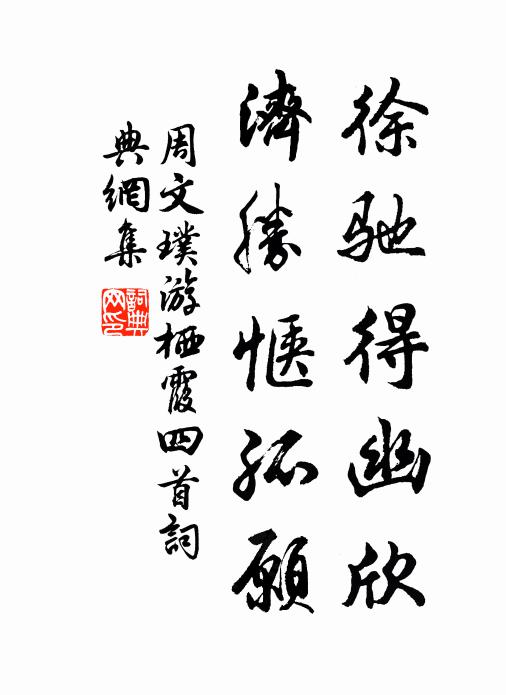 徐驰得幽欣
濟勝惬孤願
周文璞游栖霞四首詞
典網集
詞典
网印